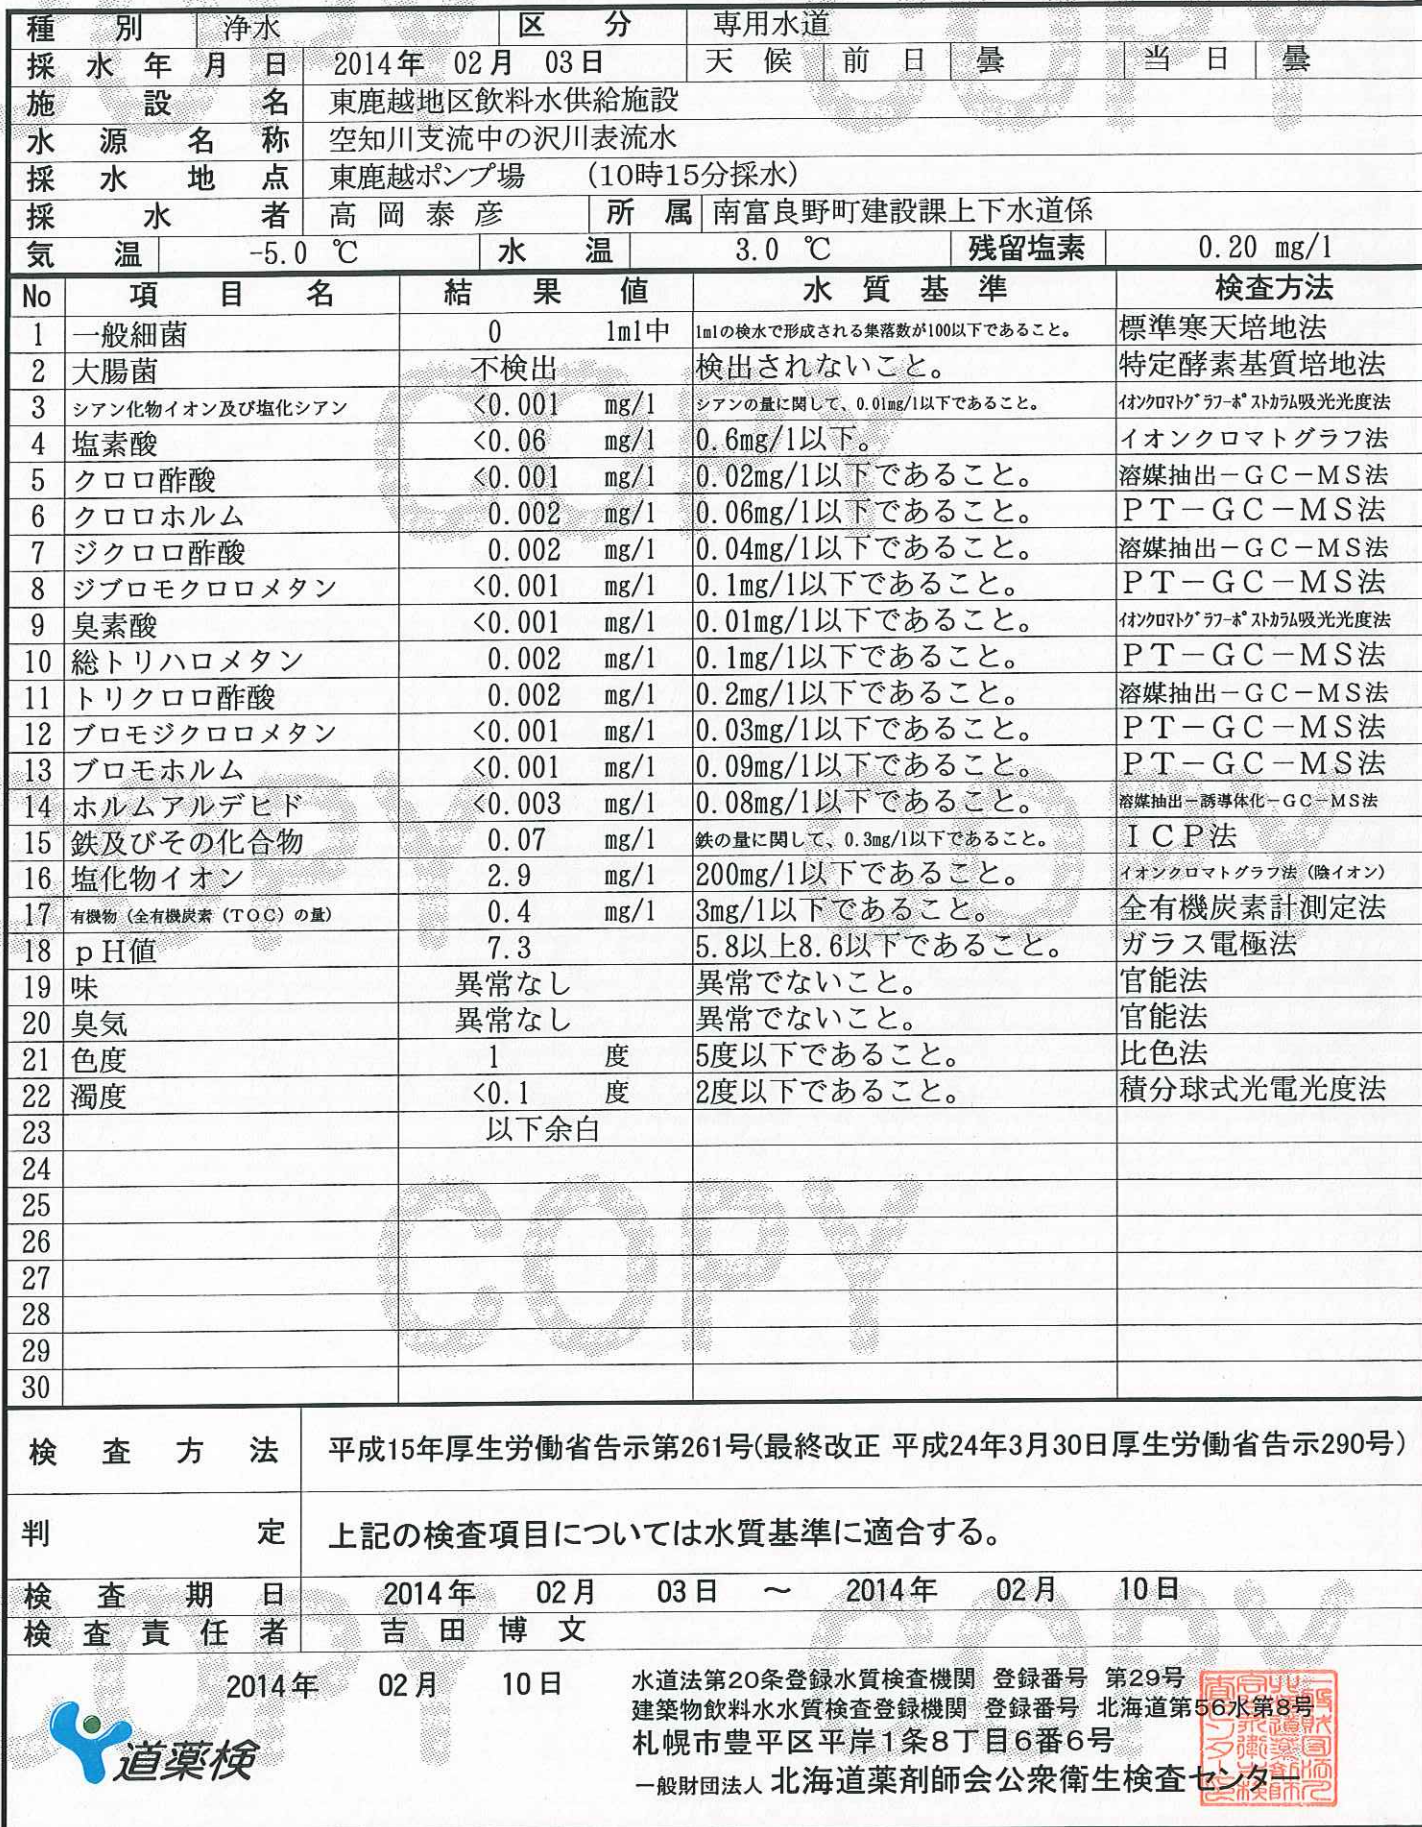 種別 浄水 区分 専用水道
採水年月日 2014年 02月 03日 天候 前日 曇 当日 曇
施設名 東鹿越地区飲料水供給施設
水源名称 空知川支流中の沢川表流水
採水地点 東鹿越ポンプ場 (10時15分採水)
採水者 高岡泰彦 所属 南富良野町建設課上下水道係
気温 -5.0 ℃ 水温 3.0 ℃ 残留塩素 0.20 mg/l
No 項目名 結果値 水質基準 検査方法
1 一般細菌 0 1ml中 1mlの検水で形成される集落数が100以下であること。 標準寒天培地法
2 大腸菌 不検出 検出されないこと。 特定酵素基質培地法
3 シアン化物イオン及び塩化シアン <0.001 mg/l シアンの量に関して、0.01mg/l以下であること。 イオンクロマトグラフ-ポストカラム吸光光度法
4 塩素酸 <0.06 mg/l 0.6mg/l以下。 イオンクロマトグラフ法
5 クロロ酢酸 <0.001 mg/l 0.02mg/l以下であること。 溶媒抽出-GC-MS法
6 クロロホルム 0.002 mg/l 0.06mg/l以下であること。 PT-GC-MS法
7 ジクロロ酢酸 0.002 mg/l 0.04mg/l以下であること。 溶媒抽出-GC-MS法
8 ジブロモクロロメタン <0.001 mg/l 0.1mg/l以下であること。 PT-GC-MS法
9 臭素酸 <0.001 mg/l 0.01mg/l以下であること。 イオンクロマトグラフ-ポストカラム吸光光度法
10 総トリハロメタン 0.002 mg/l 0.1mg/l以下であること。 PT-GC-MS法
11 トリクロロ酢酸 0.002 mg/l 0.2mg/l以下であること。 溶媒抽出-GC-MS法
12 ブロモジクロロメタン <0.001 mg/l 0.03mg/l以下であること。 PT-GC-MS法
13 ブロモホルム <0.001 mg/l 0.09mg/l以下であること。 PT-GC-MS法
14 ホルムアルデヒド <0.003 mg/l 0.08mg/l以下であること。 溶媒抽出-誘導体化-GC-MS法
15 鉄及びその化合物 0.07 mg/l 鉄の量に関して、0.3mg/l以下であること。 ICP法
16 塩化物イオン 2.9 mg/l 200mg/l以下であること。 イオンクロマトグラフ法（陰イオン）
17 有機物（全有機炭素（TOC）の量） 0.4 mg/l 3mg/l以下であること。 全有機炭素計測定法
18 pH値 7.3 5.8以上8.6以下であること。 ガラス電極法
19 味 異常なし 異常でないこと。 官能法
20 臭気 異常なし 異常でないこと。 官能法
21 色度 1 度 5度以下であること。 比色法
22 濁度 <0.1 度 2度以下であること。 積分球式光電光度法
23 以下余白
24
25
26
27
28
29
30
検査方法 平成15年厚生労働省告示第261号(最終改正 平成24年3月30日厚生労働省告示290号)
判定 上記の検査項目については水質基準に適合する。
検査期日 2014年 02月 03日 ～ 2014年 02月 10日
検査責任者 吉田博文
2014年 02月 10日
水道法第20条登録水質検査機関 登録番号 第29号
建築物飲料水水質検査登録機関 登録番号 北海道第56水第8号
札幌市豊平区平岸1条8丁目6番6号
一般財団法人 北海道薬剤師会公衆衛生検査センター
道薬検
COPY